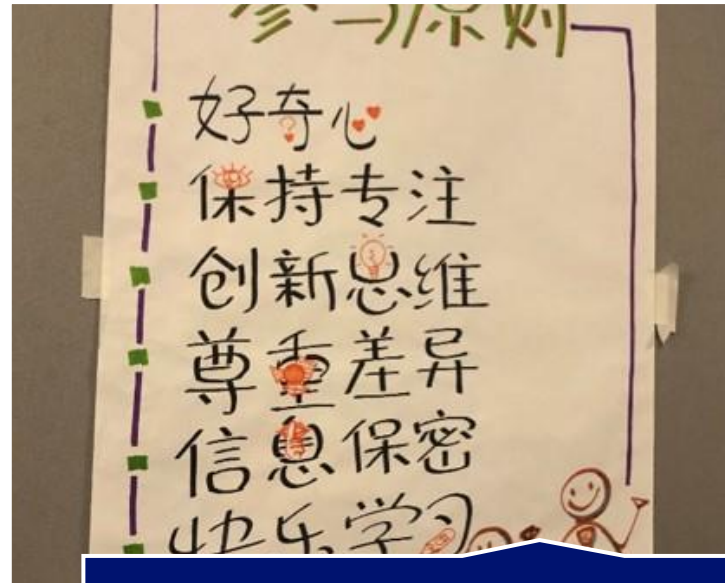 参与原则
好奇心
保持专注
创新思维
尊重差异
信息保密
快乐学习